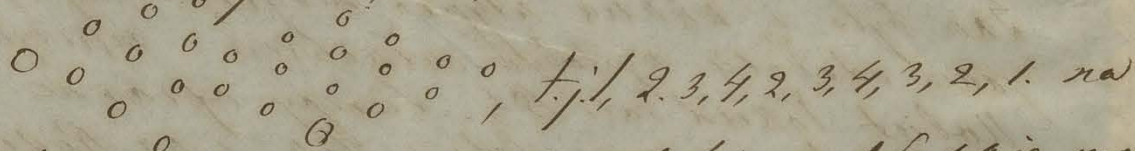 , t.j. 1, 2. 3, 4, 2, 3, 4, 3, 2, 1. na